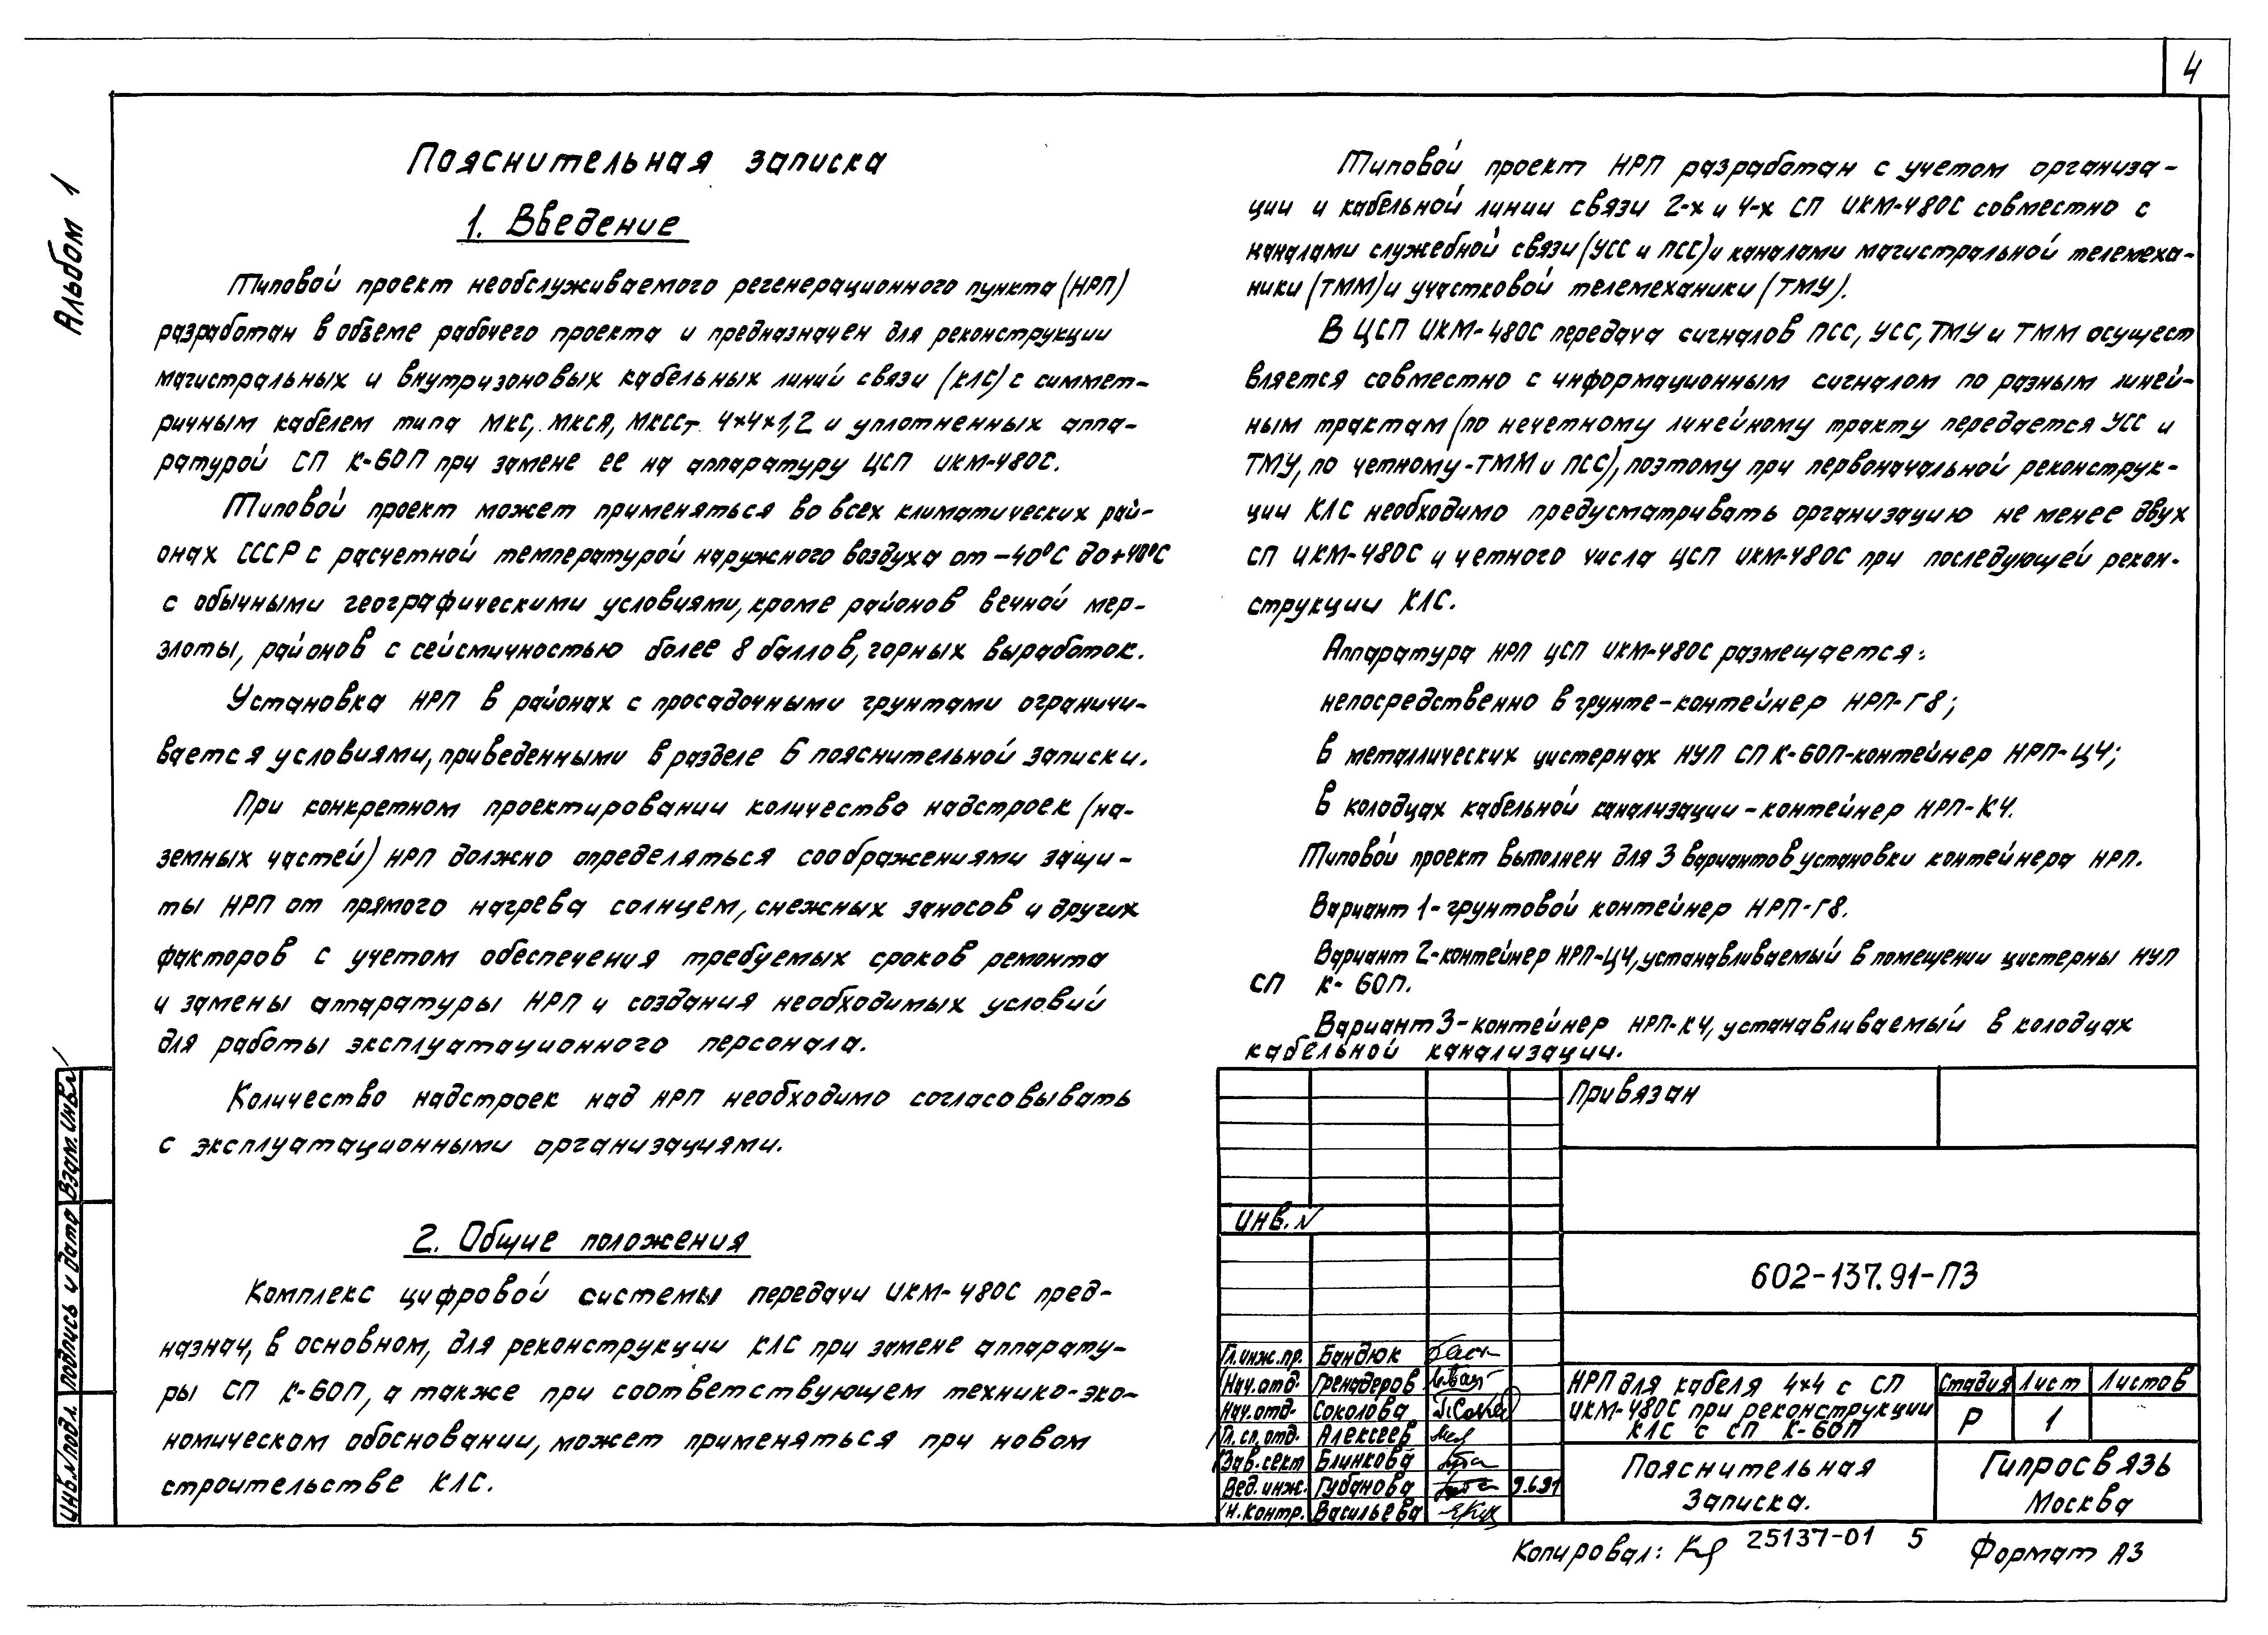 4
Альбом 1
Пояснительная записка
1. Введение
Типовой проект необслуживаемого регенерационного пункта (НРП)
разработан в объеме рабочего проекта и предназначен для реконструкции
магистральных и внутризоновых кабельных линий связи (КЛС) с симмет-
ричным кабелем типа МКС, МКСЯ, МКССт 4×4×1,2 и уплотненных аппа-
ратурой СП К-60П при замене ее на аппаратуру ЦСП ИКМ-480С.
Типовой проект может применяться во всех климатических рай-
онах СССР с расчетной температурой наружного воздуха от -40°С до +40°С
с обычными географическими условиями, кроме районов вечной мер-
злоты, районов с сейсмичностью более 8 баллов, горных выработок.
Установка НРП в районах с просадочными грунтами ограничи-
вается условиями, приведенными в разделе 6 пояснительной записки.
При конкретном проектировании количество надстроек (на-
земных частей) НРП должно определяться соображениями защи-
ты НРП от прямого нагрева солнцем, снежных заносов и других
факторов с учетом обеспечения требуемых сроков ремонта
и замены аппаратуры НРП и создания необходимых условий
для работы эксплуатационного персонала.
Количество надстроек над НРП необходимо согласовывать
с эксплуатационными организациями.
2. Общие положения
Комплекс цифровой системы передачи ИКМ-480С пред-
назнач, в основном, для реконструкции КЛС при замене аппарату-
ры СП К-60П, а также при соответствующем технико-эко-
номическом обосновании, может применяться при новом
строительстве КЛС.
Типовой проект НРП разработан с учетом организа-
ции и кабельной линии связи 2-х и 4-х СП ИКМ-480С совместно с
каналами служебной связи (УСС и ПСС) и каналами магистральной телемеха-
ники (ТММ) и участковой телемеханики (ТМУ).
В ЦСП ИКМ-480С передача сигналов ПСС, УСС, ТМУ и ТММ осущест
вляется совместно с информационным сигналом по разным линей-
ным трактам (по нечетному линейному тракту передается УСС и
ТМУ, по четному-ТММ и ПСС), поэтому при первоначальной реконструк-
ции КЛС необходимо предусматривать организацию не менее двух
СП ИКМ-480С и четного числа ЦСП ИКМ-480С при последующей рекон-
струкции КЛС.
Аппаратура НРП ЦСП ИКМ-480С размещается:
непосредственно в грунте-контейнер НРП-Г8;
в металлических цистернах НУП СП К-60П-контейнер НРП-Ц4;
в колодцах кабельной канализации-контейнер НРП-К4.
Типовой проект выполнен для 3 вариантов установки контейнера НРП.
Вариант 1-грунтовой контейнер НРП-Г8.
Вариант 2-контейнер НРП-Ц4, устанавливаемый в помещении цистерны НУП
СП К-60П.
Вариант 3-контейнер НРП-К4, устанавливаемый в колодцах
кабельной канализации.
Привязан
Инв. №
602-137.91-ПЗ
Гл.инж.пр. Бандюк
Нач.отд. Гренадеров
Нач.отд. Соколова
Гл.сп.отд. Алексеев
Зав.сект Блинкова
Вед.инж. Губанова 9.6.91
Н.контр. Васильева
НРП для кабеля 4×4 с СП
ИКМ-480С при реконструкции
КЛС с СП К-60П
Стадия Лист Листов
Р 1
Пояснительная
Записка.
Гипросвязь
Москва
Взам. инв.№
Подпись и дата
Инв.№ подл.
Копировал: 25137-01 5 Формат А3